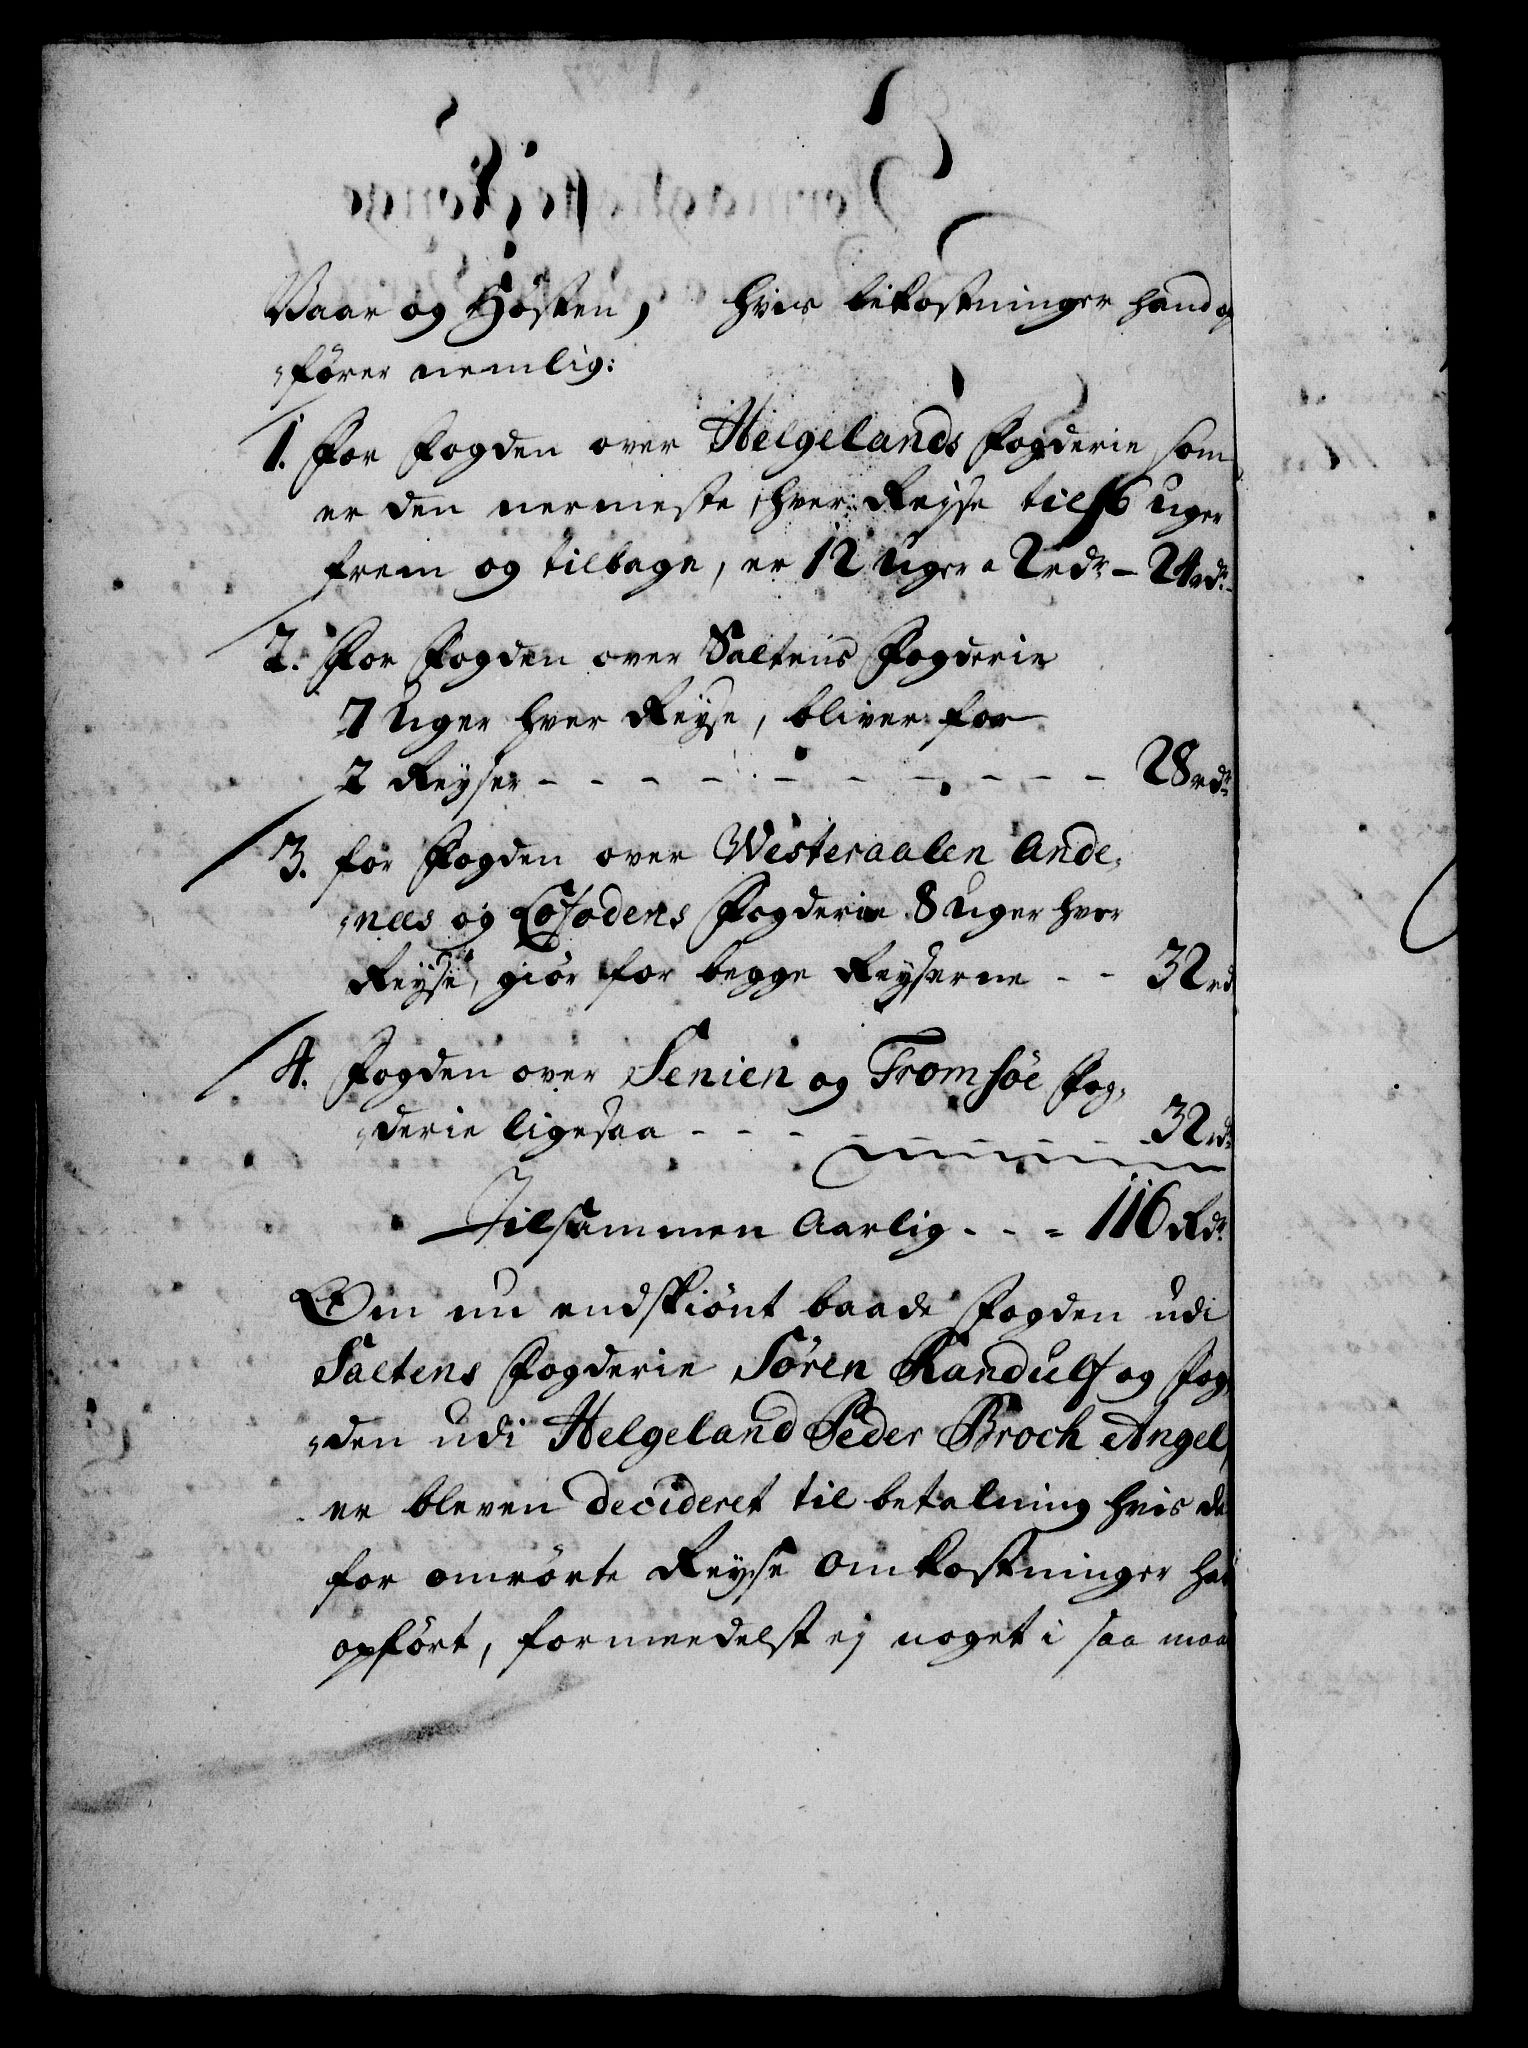 Vaar og Høsten, hvis bekostninger hand op
„fører nemlig:
1. For Fogden over Helgelands Fogderie som
er den nermeste, hver Reyse til 6 uger
frem og tilbage, er 12 Uger a 2 rdr – 24 rdr
2. For Fogden over Saltens Fogderie
7 Uger hver Reyse, bliver for
2 Reyser - - - - - - - - - - 28 rdr
3. for Fogden over Westeraalen Ande„
„næs og Lofodens Fogderie 8 uger hver
Reyse, giør for begge Reyserne - - 32 rd
4. Fogden over Senien og Tromsøe Fog„
„derie ligesaa - - - - - - - - 32 rdr
Tilsammen Aarlig - - - 116 Rdr
Om nu endskiønt baade Fogden udi
Saltens Fogderie Søren Randulf og Fog„
„den udi Helgeland Peder Broch Angel,
er bleven decideret til betalning hvis de
for omrørte Reyse Omkostninger har
opført, formedelst ej noget i saa maa